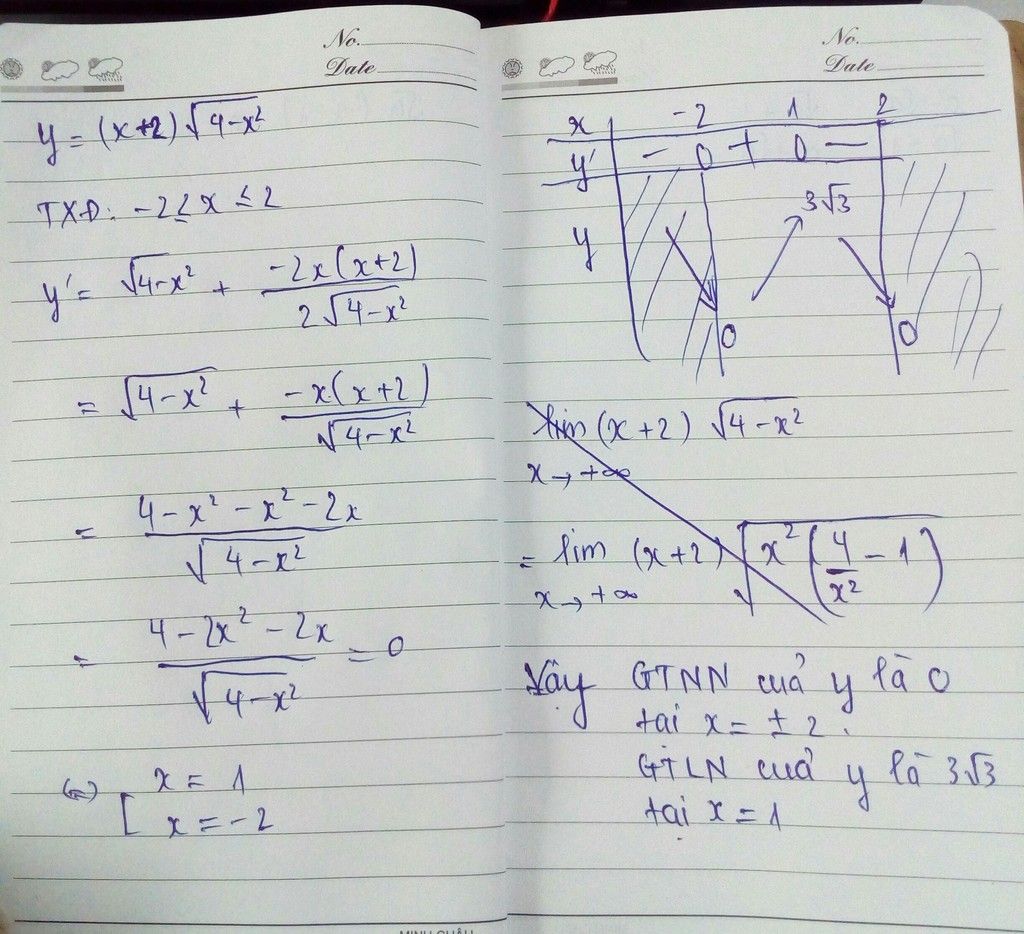 No.
Date
y = (x+2)√(4-x²)
TXĐ: -2 ≤ x ≤ 2
y' = √(4-x²) + (-2x(x+2))/(2√(4-x²))
= √(4-x²) + (-x(x+2))/(√(4-x²))
= (4-x²-x²-2x)/(√(4-x²))
= (4-2x²-2x)/(√(4-x²)) = 0
(=) [ x = 1
x = -2
No.
Date
x -2 1 2
y' - 0 + 0 -
y 0 3√3 0
lim (x+2) √(4-x²)
x→+∞
= lim (x+2) √(x²(4/x² - 1))
x→+∞
Vậy GTNN cuả y là 0
tại x = ± 2.
GTLN cuả y là 3√3
tại x = 1